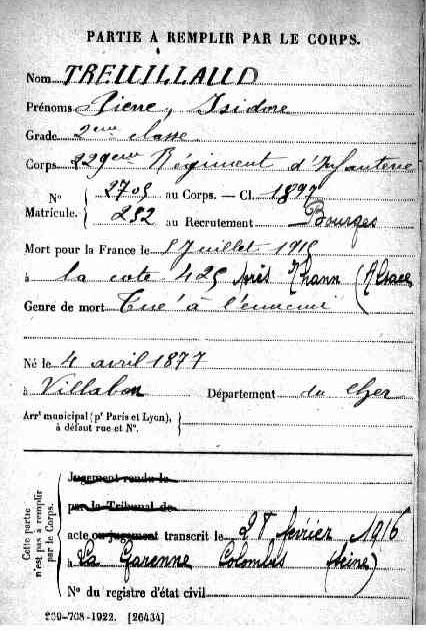 PARTIE À REMPLIR PAR LE CORPS.
Nom TREUILLAUD
Prénoms Pierre, Isidore
Grade 2eme classe
Corps 229eme Régiment d'Infanterie
N° Matricule. { 2705 au Corps. — Cl. 1897
252 au Recrutement Bourges
Mort pour la France le 5 Juillet 1915
à la cote 425 près Thann (Alsace
Genre de mort Tué à l'ennemi
Né le 4 avril 1877
à Villabon Département du Cher
Arrt municipal (pr Paris et Lyon),
à défaut rue et N°.
Cette partie n'est pas à remplir par le Corps.
Jugement rendu le
par le Tribunal de
acte ou jugement transcrit le 28 février 1916
à La Garenne Colombes (Seine)
N° du registre d'état civil
-708-1922. [26434]